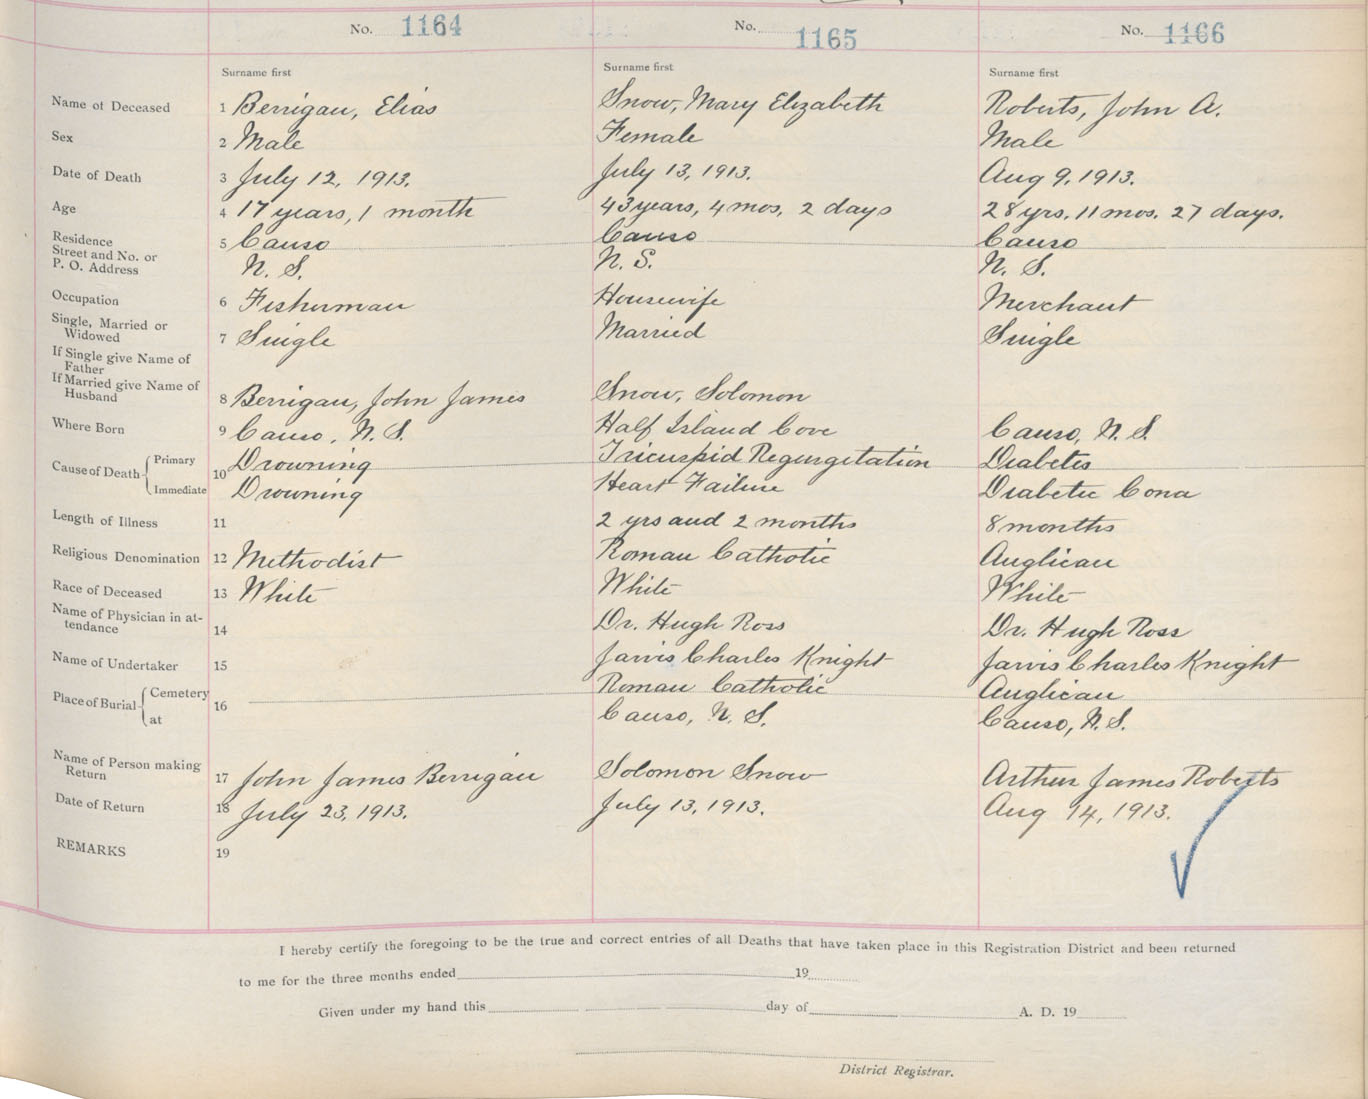 No. 1164 No. 1165 No. 1166
Surname first Surname first Surname first
Name of Deceased 1 Berrigan, Elias Snow, Mary Elizabeth Roberts, John A.
Sex 2 Male Female Male
Date of Death 3 July 12, 1913. July 13, 1913. Aug 9, 1913.
Age 4 17 years, 1 month 43 years, 4 mos, 2 days 28 yrs. 11 mos. 27 days.
Residence 5 Canso Canso Canso
Street and No. or
P. O. Address N. S. N. S. N. S.
Occupation 6 Fisherman Housewife Merchant
Single, Married or
Widowed 7 Single Married Single
If Single give Name of
Father
If Married give Name of
Husband 8 Berrigan, John James Snow, Solomon
Where Born 9 Canso, N. S. Half Island Cove Canso, N. S.
Cause of Death Primary 10 Drowning Tricuspid Regurgetation Diabetis
Immediate Drowning Heart Failure Diabetic Coma
Length of Illness 11 2 yrs and 2 months 8 months
Religious Denomination 12 Methodist Roman Catholic Anglican
Race of Deceased 13 White White White
Name of Physician in at-
tendance 14 Dr. Hugh Ross Dr. Hugh Ross
Name of Undertaker 15 Jarvis Charles Knight Jarvis Charles Knight
Place of Burial Cemetery 16 Roman Catholic Anglican
at Canso, N. S. Canso, N. S.
Name of Person making
Return 17 John James Berrigan Solomon Snow Arthur James Roberts
Date of Return 18 July 23, 1913. July 13, 1913. Aug 14, 1913.
REMARKS 19
I hereby certify the foregoing to be the true and correct entries of all Deaths that have taken place in this Registration District and been returned
to me for the three months ended 19
Given under my hand this day of A. D. 19
District Registrar.